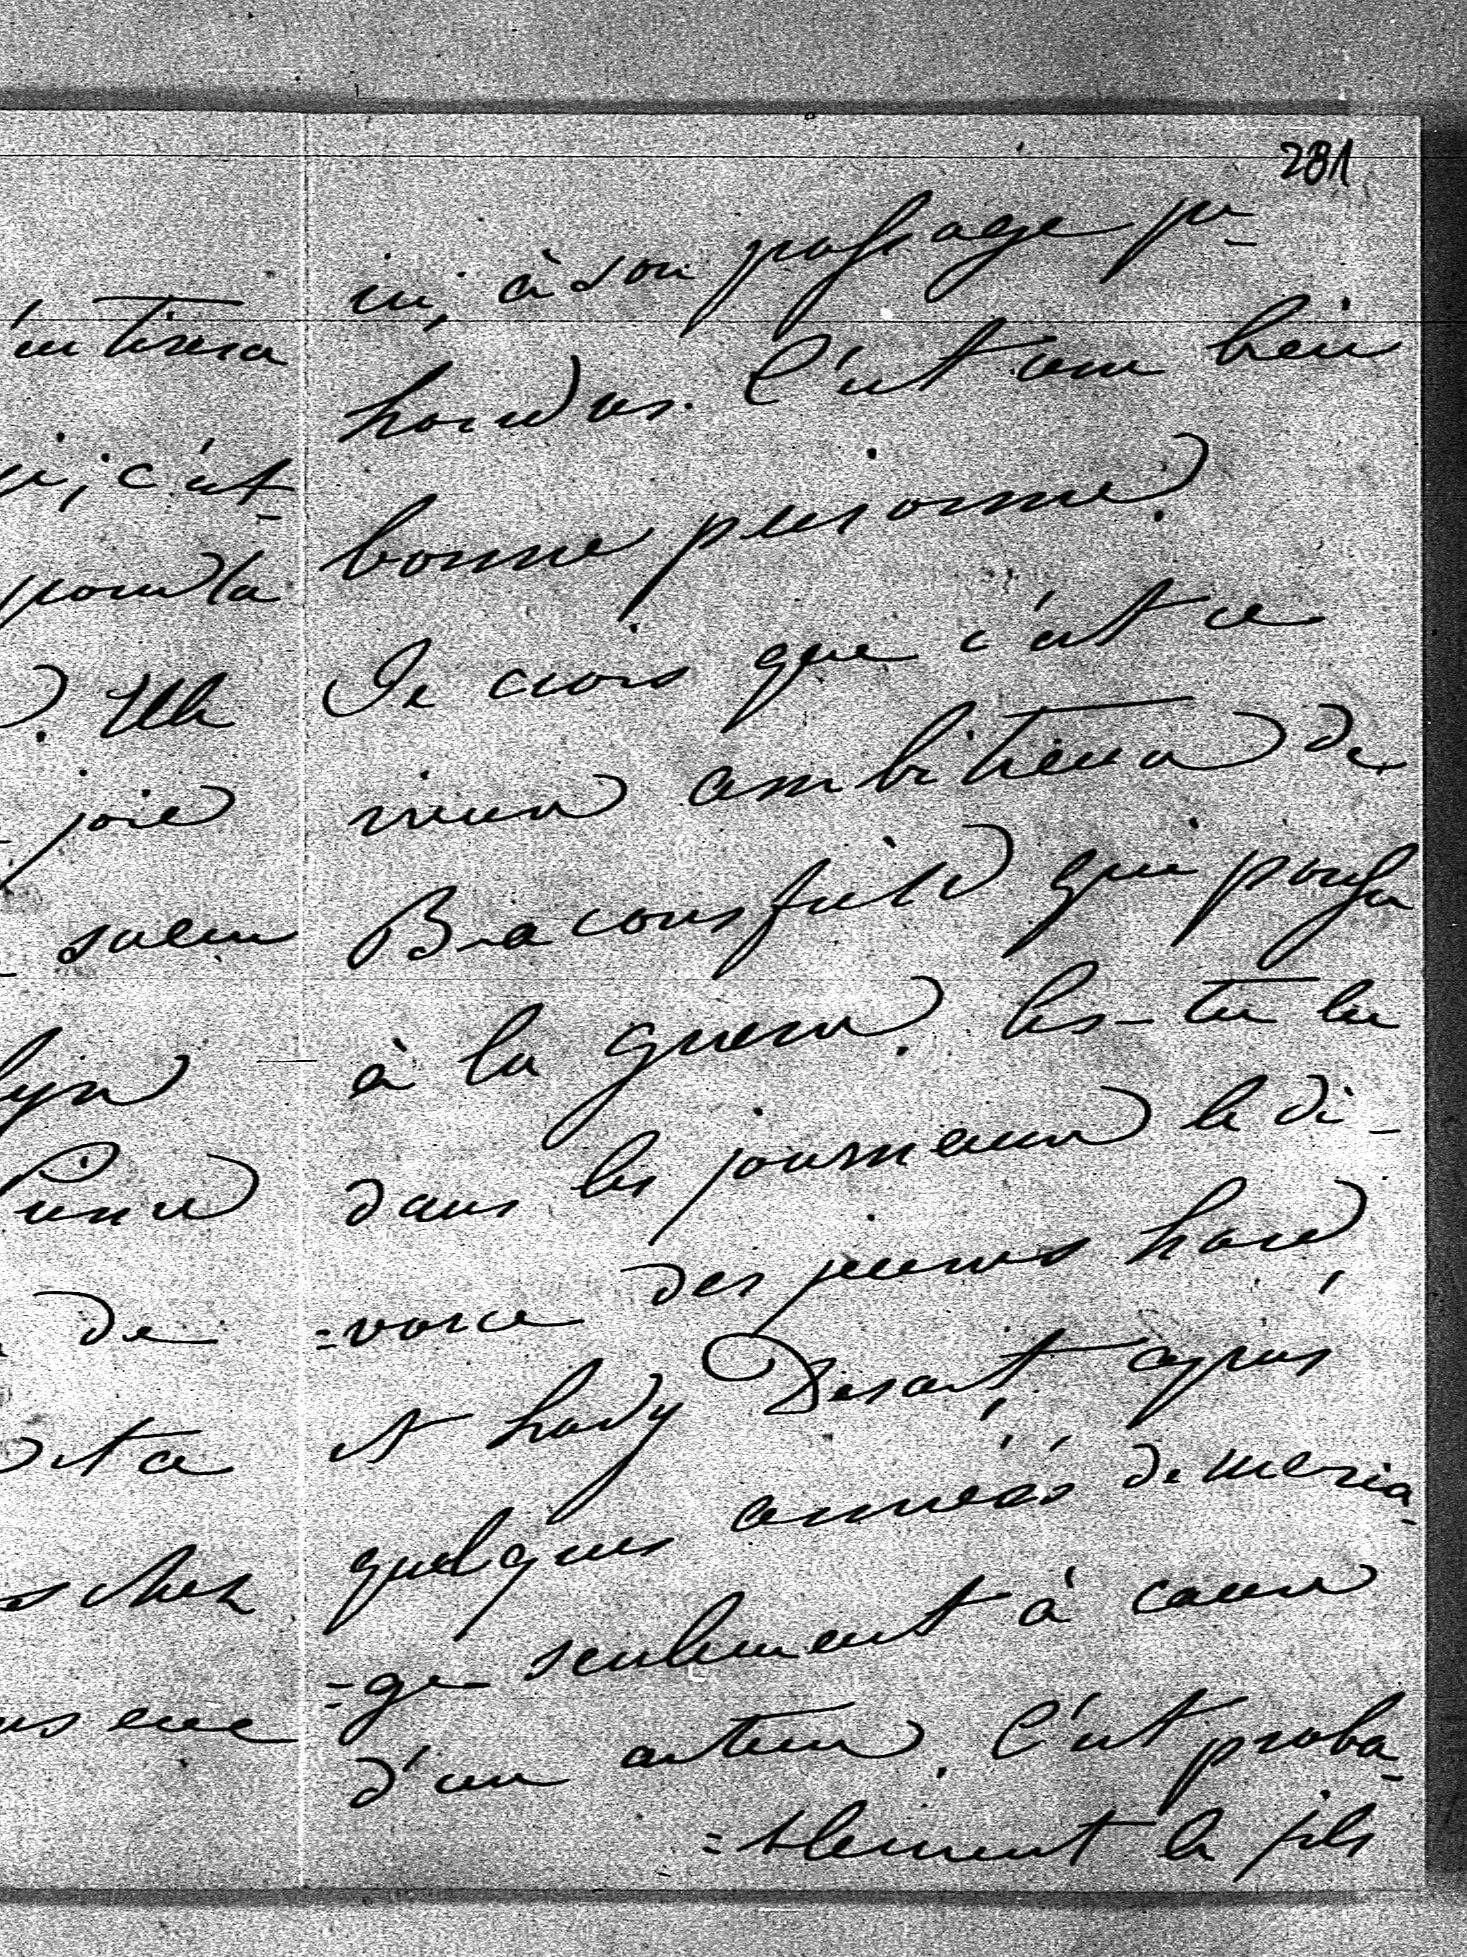 281
ici, à son passage pr
Londres. C'est une bien
bonne personne.
Je crois que c'est ce
vieux ambitieux de
Beaconsfield qui poussa
à la guerre. As-tu lu
dans les journaux le di-
=vorce des jeunes Lord
et Lady Desart, après
quelques années de maria-
=ge seulement à cause
d'un acteur. C'est proba-
=blement le fils
entirera
c'est
pour la
joie
de
et a
chez